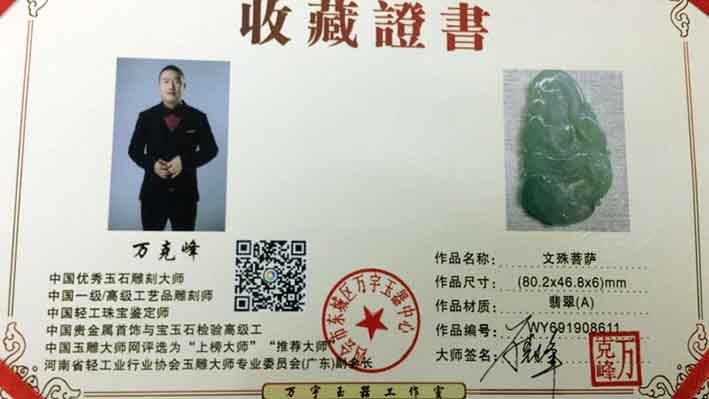 收藏證書
万克峰
中国优秀玉石雕刻大师
中国一级/高级工艺品雕刻师
中国轻工珠宝鉴定师
中国贵金属首饰与宝玉石检验高级工
中国玉雕大师网评选为“上榜大师”“推荐大师”
河南省轻工业行业协会玉雕大师专业委员会(广东)副会长
市东城区万字玉器中心
作品名称: 文殊菩萨
作品尺寸: (80.2x46.8x6)mm
作品材质: 翡翠(A)
作品编号: WY691908611
大师签名: 万克峰
万克峰
万字玉器工作室